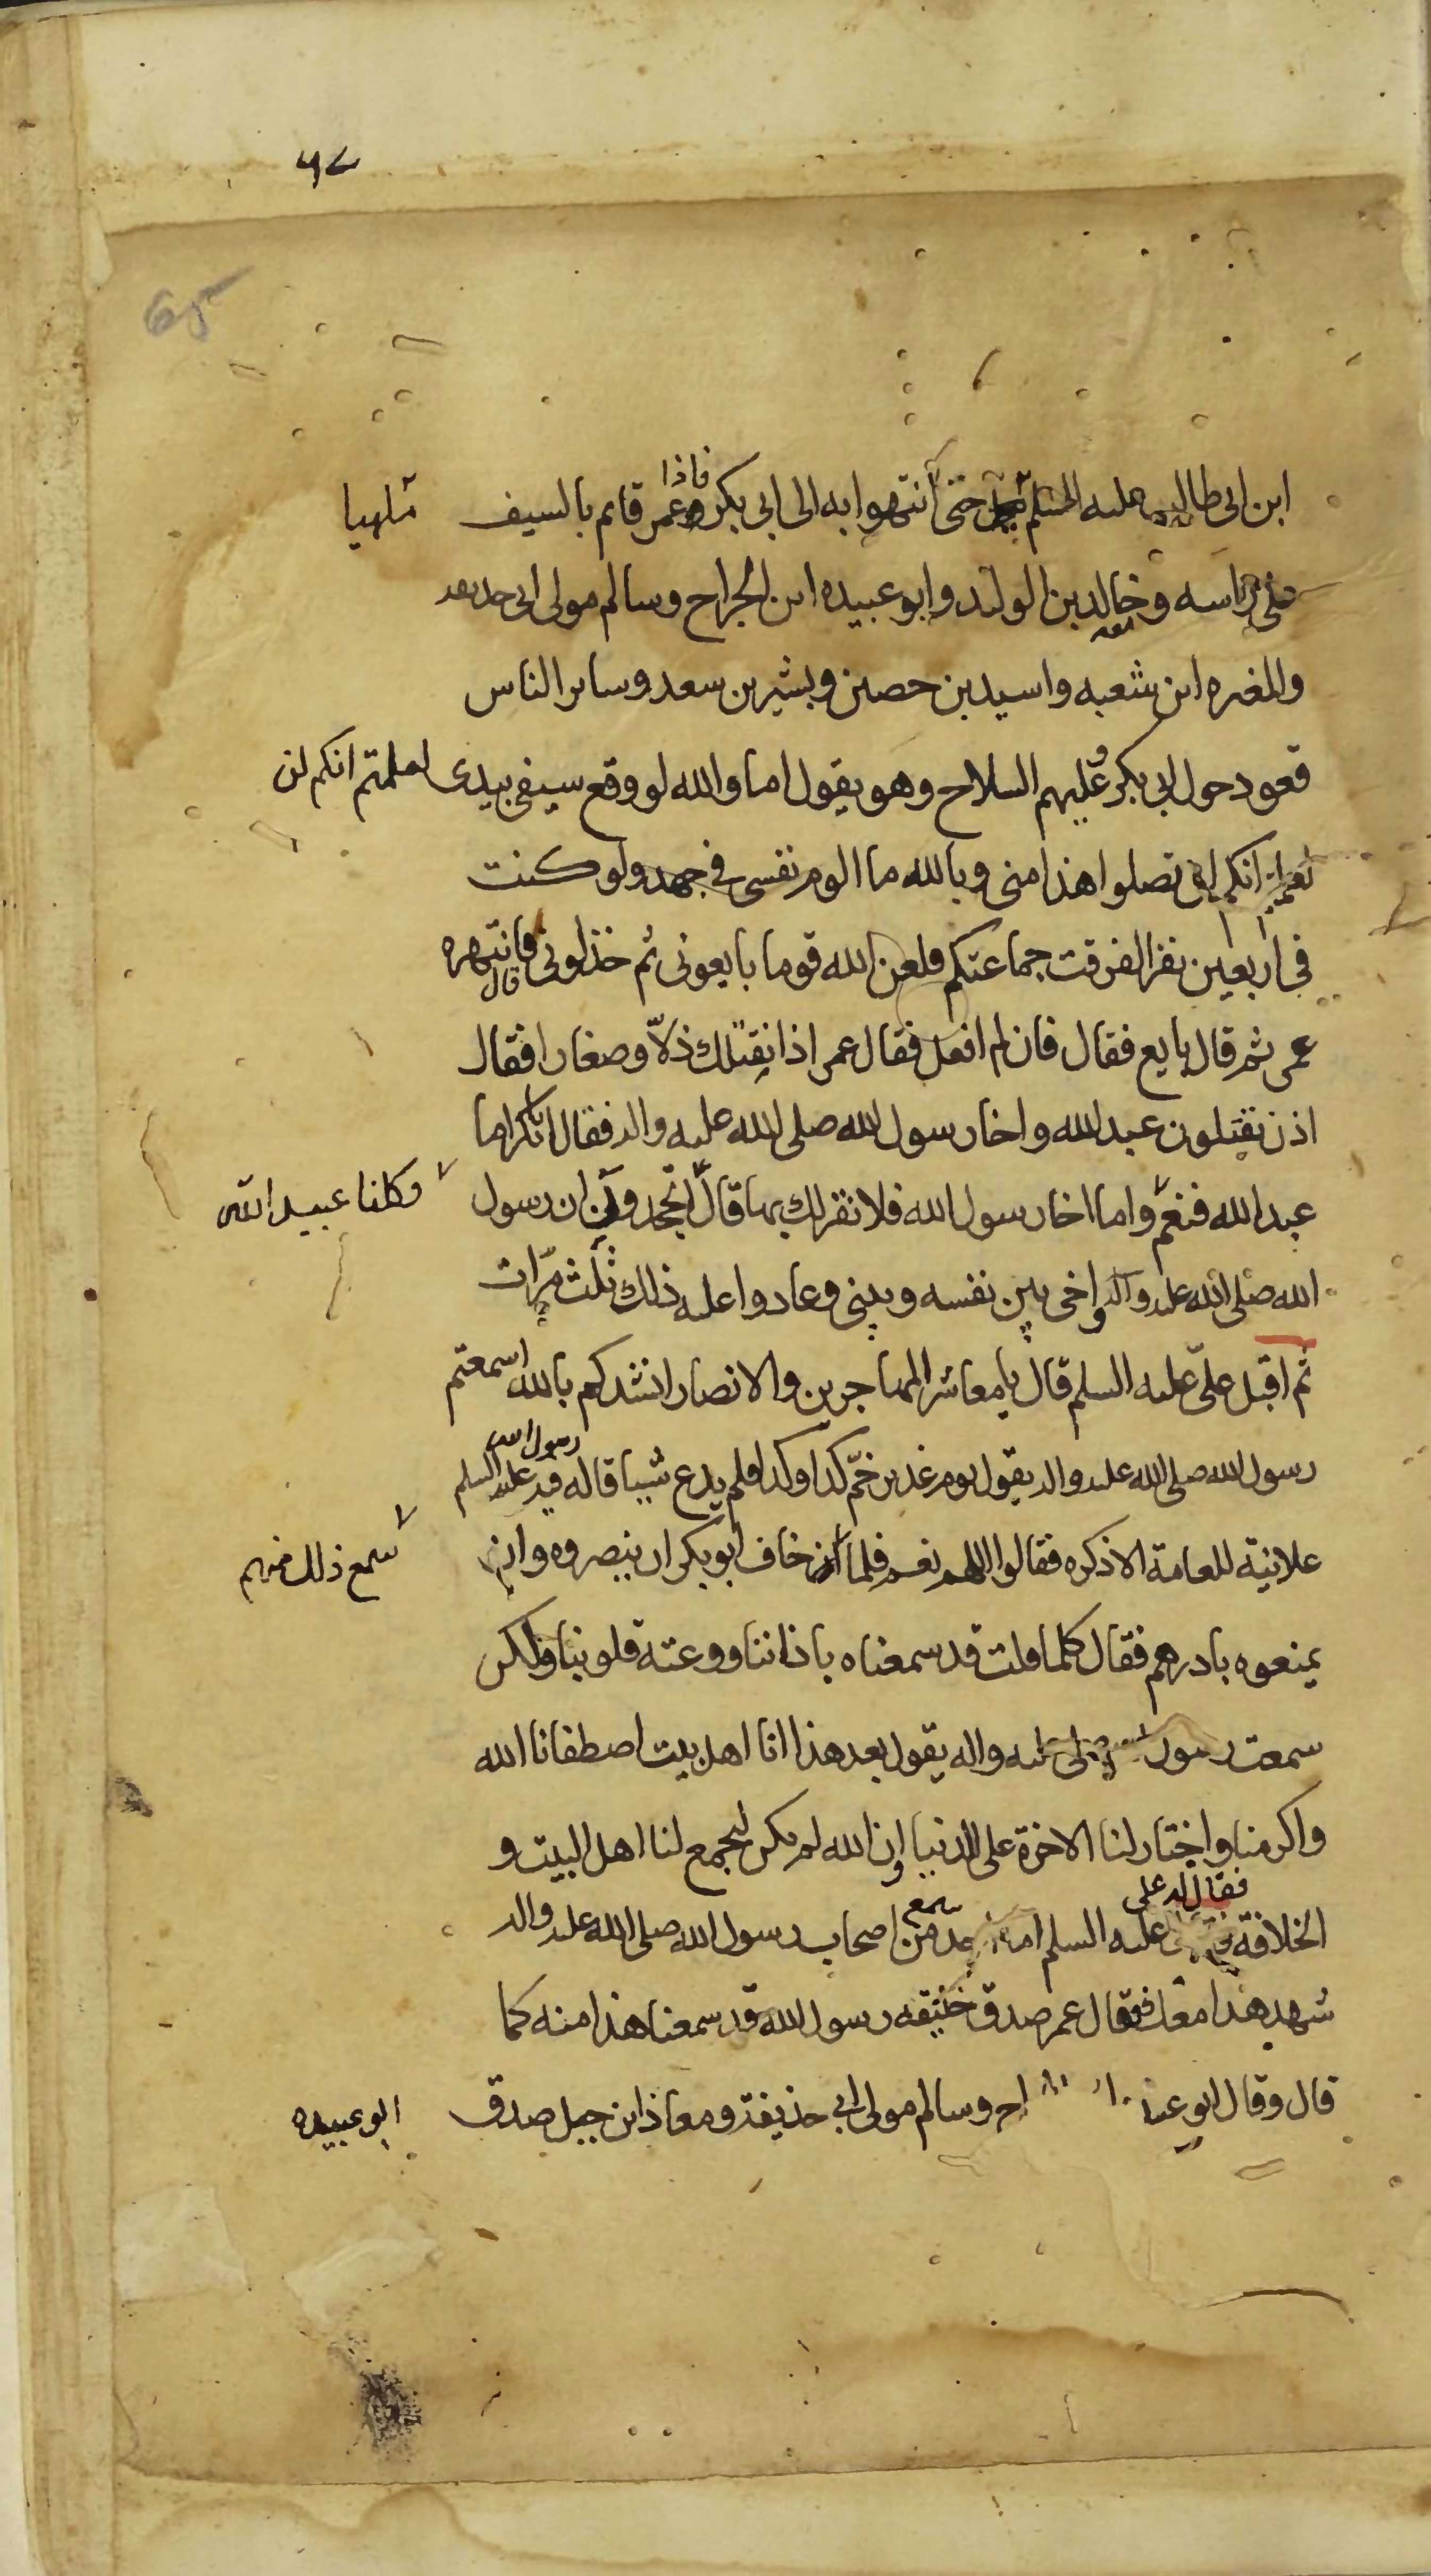 ابن ابى طالب عليه السلم حتى انتهوا به الى ابى بكر فاذا عمر قايم بالسيف
على راسه وخالد بن الوليد وابو عبيده ابن الجراح وسالم مولى ابى حذيفه
والمغيره ابن شعبه واسيد بن حصين وبشير بن سعد وساير الناس
قعود حول ابى بكر وعليهم السلاح وهو يقول اما والله لو وقع سيفى بيدى لعلمتم انكم لن
تصلوا هذا منى وبالله ما الوم نفسى فى جهد ولو كنت
فى اربعين نفرا لفرقت جماعتكم فلعن الله قوما بايعونى ثم خذلونى فانتهره
عمر ثم قال بايع فقال فان لم افعل فقال عمر اذا نقتلك ذلاّ وصغارا فقال
اذن تقتلون عبد الله واخا رسول الله صلى الله عليه واله فقال ابابكر اما
عبد الله فنعم وكلنا عبيد الله واما اخا رسول الله فلا نقر لك بها قال اتجحدون ان رسول
الله صلى الله عليه واله واخى بين نفسه وبينى وعادوا عليه ذلك ثلث مرّات
ثم اقبل علىّ عليه السلم قال يا معاشر المهاجرين والانصار انشدكم بالله اسمعتم
رسول الله صلى الله عليه واله يقول يوم غدير خمّ كدا وكدا فلم يدع شيا قاله فيه رسول الله عليه السلم
علانية للعامة الا ذكره فقالوا اللهم نعم فلما سمع ذلك منهم خاف ابو بكر ان ينصروه وان
يمنعوه بادرهم فقال كلما قلت قد سمعناه باذاننا ووعته قلوبنا ولكن
سمعت رسول الله صلى عليه واله يقول بعد هذا انا اهل بيت اصطفانا الله
واكرمنا واختار لنا الاخرة على الدنيا وان الله لم يكن ليجمع لنا اهل البيت و
الخلافة فقال له على عليه السلم احد من سمع اصحاب رسول الله صلى الله عليه واله
شهد هذا معك فقال عمر صدق خليفه رسول الله قد سمعنا هذا منه كما
قال وقال ابو عبيده وسالم مولى ابى حذيفة ومعاذ ابن جبل صدق
ابو عبيده
65